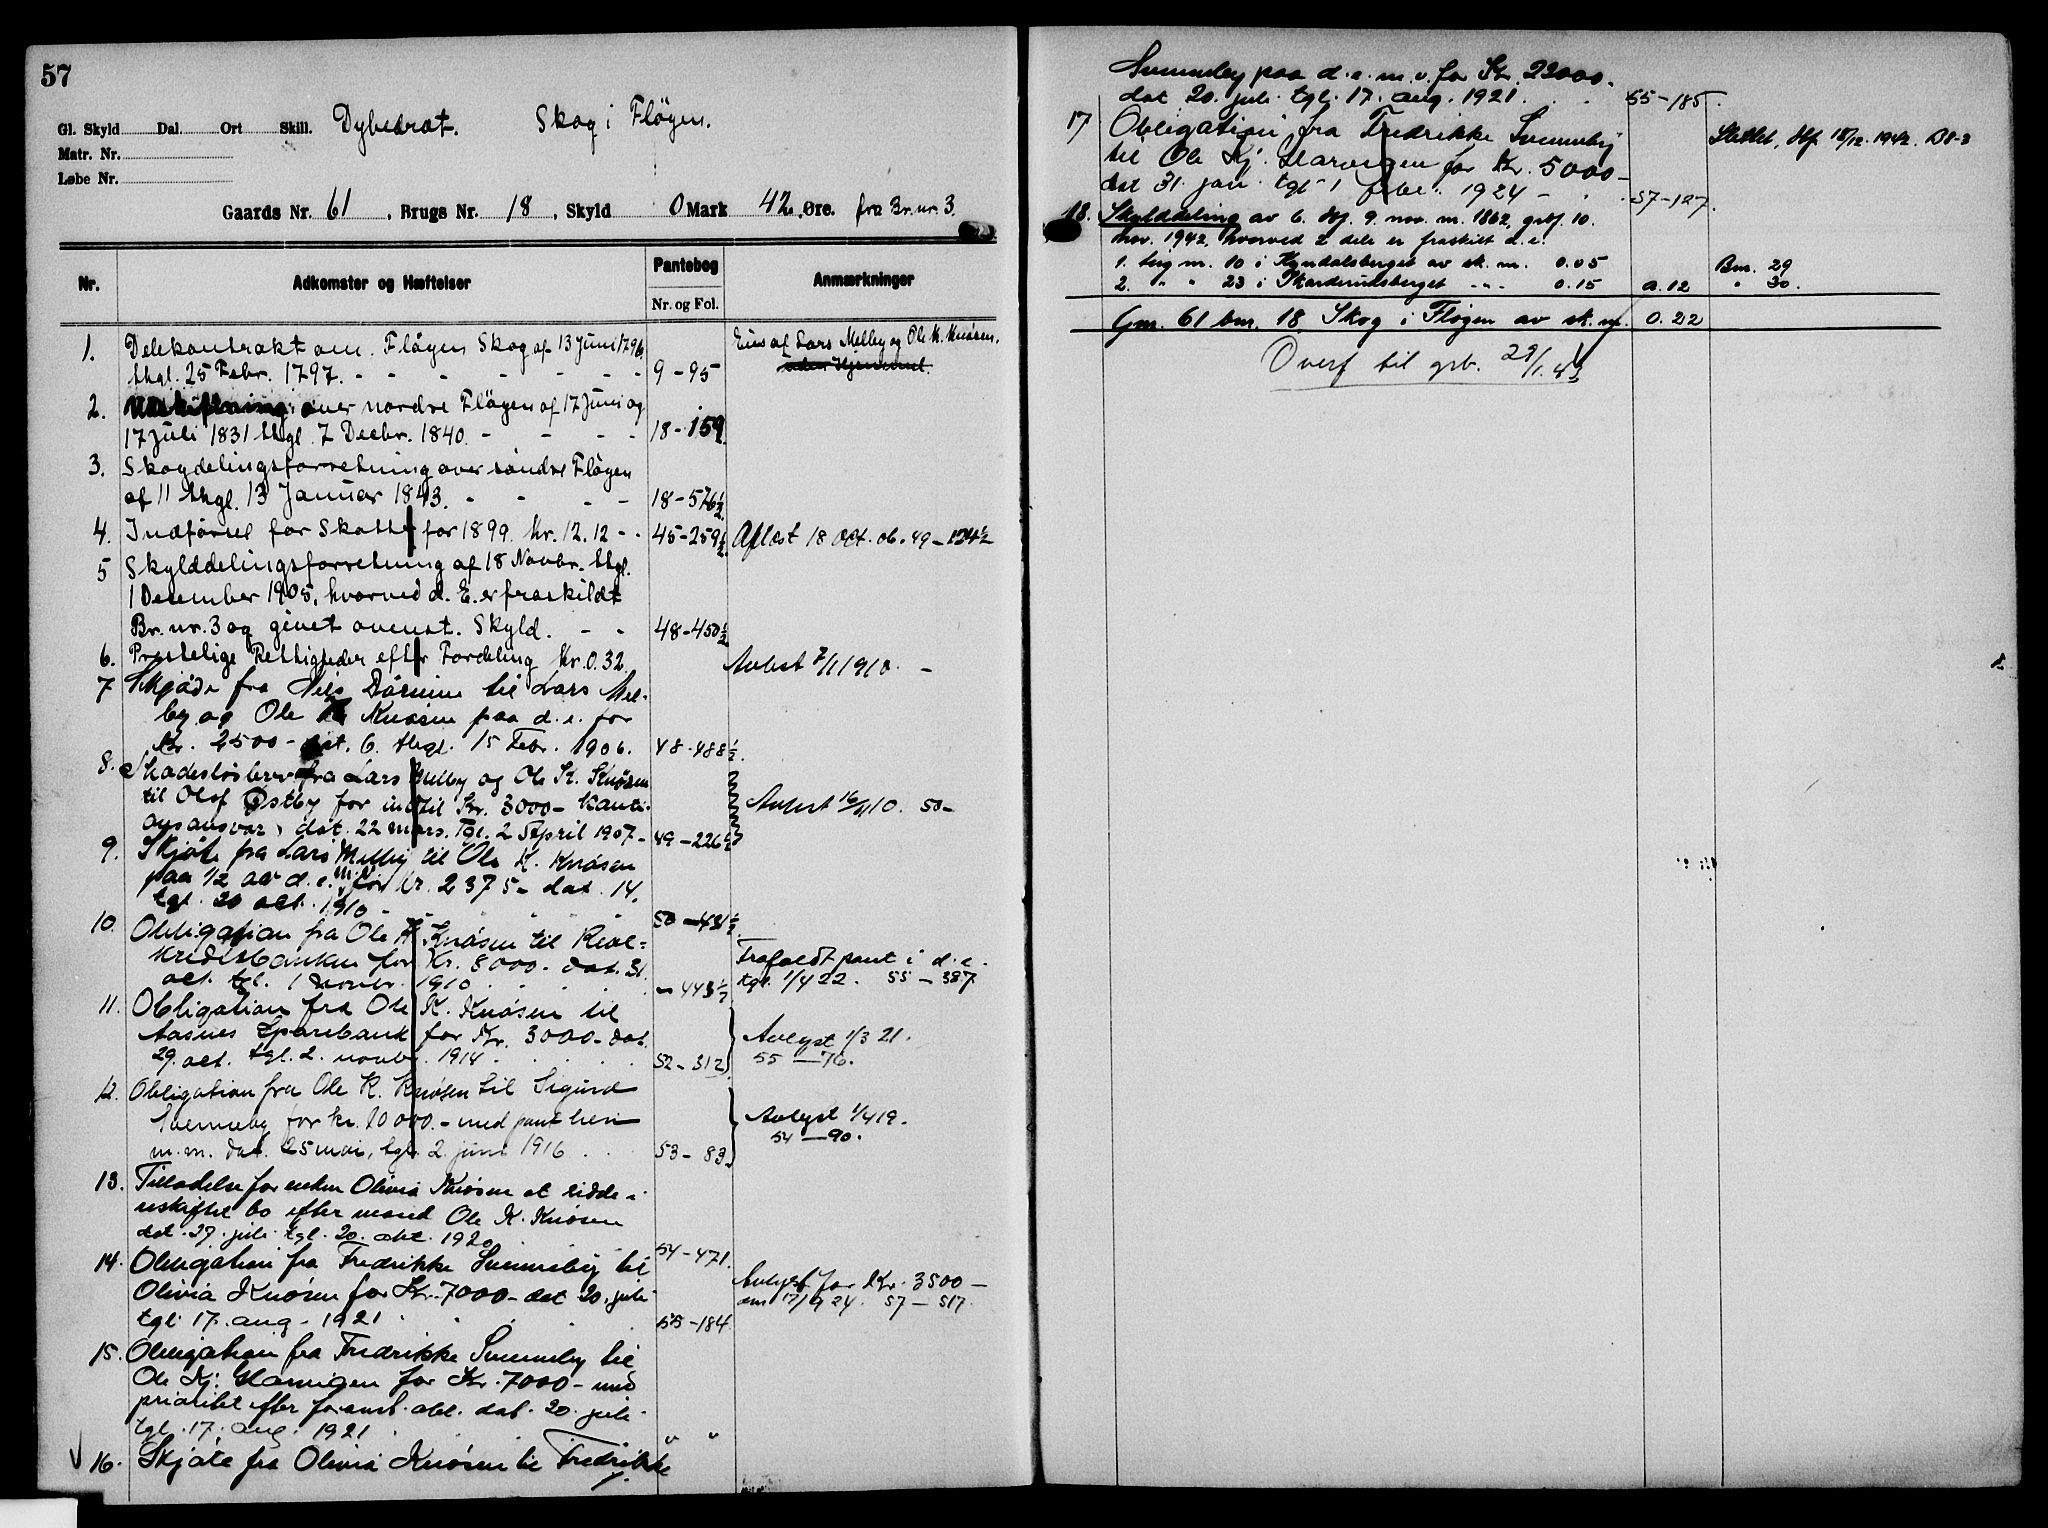 57
Gl. Skyld Dal. Ort Skill. Dybedrat. Skog i Fløgen.
Matr. Nr.
Løbe Nr.
Gaards Nr. 61, Brugs Nr. 18, Skyld 0 Mark 42 Øre. fra Br. nr. 3.
Nr. Adkomster og Hæftelser Pantebog Nr. og Fol. Anmærkninger
1. Delekontrakt om Fløgen Skog af 13 Juni 1796, Eies af Lars Melby og Ole K. Knøsen,
thgl. 25 Febr. 1797. - - - - - - 9-95 uden Hjemmel.
2. Udskiftning over nordre Fløgen af 17 Juni og
17 Juli 1831 thgl. 7 Decbr. 1840. - - - - 18-159
3. Skogdelingsforretning over søndre Fløgen
af 11 thgl. 13 Januar 1843. - - - - 18-576½
4. Indførsel for Skatter for 1899. Kr. 12.12 - - 45-259½ Aflæst 18 oct. 06. 49-124½
5 Skylddelingsforretning af 18 Novbr. thgl.
1 December 1905, hvorved d. E. er fraskildt
Br. nr. 3 og givet ovenst. Skyld. - - 48-450½
6. Prestelige Rettigheder efter Fordeling Kr. 0.32. Avlæst 7/1 1910. -
7 Skjøde fra Nils Dørum til Lars Mel-
by og Ole K Knøsen paa d. e. for
Kr. 2500 - dat. 6. thgl. 15 Febr. 1906. 48-488½.
8. Skadesløsbrev fra Lars Melby og Ole K. Knøsen
til Olof Østby for indtil Kr. 3000 - kauti-
onsansvar, dat. 22 mars. Tgl. 2 April 1907 - 49-226½ Avlæst 16/11 10. 50-
9. Skjøte fra Lars Melby til Ole K. Knøsen
paa 1/2 av d. e. m. v. for kr. 2375 - dat. 14.
tgl. 20 okt. 1910 50-431½
10. Obligation fra Ole K. Knøsen til Real-
kreditbanken for Kr. 8000 - dat. 31.
okt. tgl. 1 novbr. 1910 " 443½ Frafaldt pant i d. e. tgl. 1/4 22. 55-387
11. Obligation fra Ole K. Knøsen til
Aasnes Sparebank for Kr. 3000 - dat.
29. okt. tgl. 2. novbr. 1914 52-312 Avlyst 1/3 21. 55-76.
12. Obligation fra Ole K. Knøsen til Sigurd
Svenneby for kr. 10 000. - med pant heri
m. m. dat. 25 mai, tgl. 2. juni 1916 53-83 Avlyst 1/4 19. 54-90.
13. Tilladelse for enken Olivia Knøsen at sidde i
uskiftet bo efter mand Ole K. Knøsen
dat. 27. juli tgl. 20. okt. 1920 54-471.
14. Obligation fra Fredrikke Svenneby til
Olivia Knøsen for Kr. 7000 - dat 20. juli Avlyst for Kr. 3500 -
tgl. 17. aug. 1921 55-184. 57-517.
15. Obligation fra Fredrikke Svenneby til
Ole Kj. Harvigen for Kr. 7000 - med
prioritet efter foranst. obl. dat. 20. juli -
tgl. 17. aug. 1921 " "
16. Skjøte fra Olivia Knøsen til Fredrikke
Svenneby paa d. e. m. v. for Kr. 22000 -
dat 20. juli tgl. 17. aug. 1921. 55-185.
17 Obligation fra Fredrikke Svenneby Slettet, dhf. 18/12. 1942.
til Ole Kj. Harvigen for Kr. 5000 -
dat 31. jan. tgl. 1 febr. 1924 - 57-127.
18. Skylddeling av 6. thf. 9. nov. m. 1862, grbf. 10.
nov. 1942, hvorved 2 dele er fraskilt d. e.
1. teig nr. 10 i Kyndalsberget av sk. m. 0.05 Bnr. 29
2. " " 23 i Skarderudsberget - " - 0.15 a. 12 " 30.
Gnr. 61 bnr. 18 Skog i Fløgen av sk. m. 0.22
Overf til grb. 29/1. 43